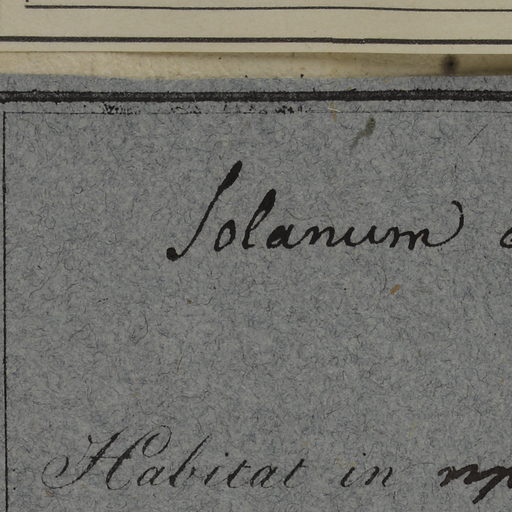 Solanum
Habitat in